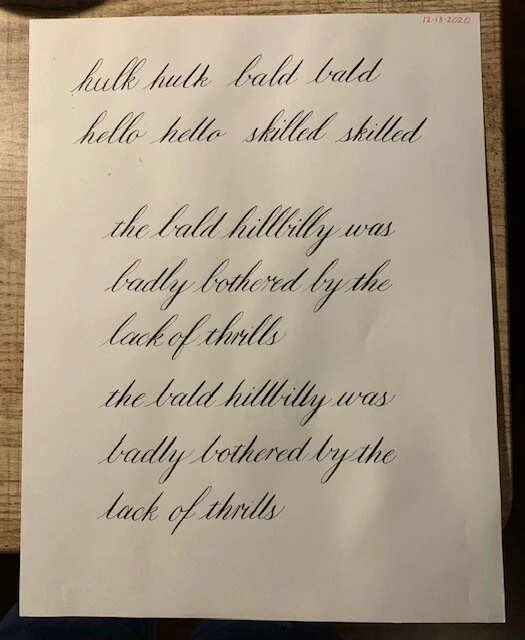 12-13-2020
hulk hulk bald bald
hello hello skilled skilled
the bald hillbilly was
badly bothered by the
lack of thrills
the bald hillbilly was
badly bothered by the
lack of thrills